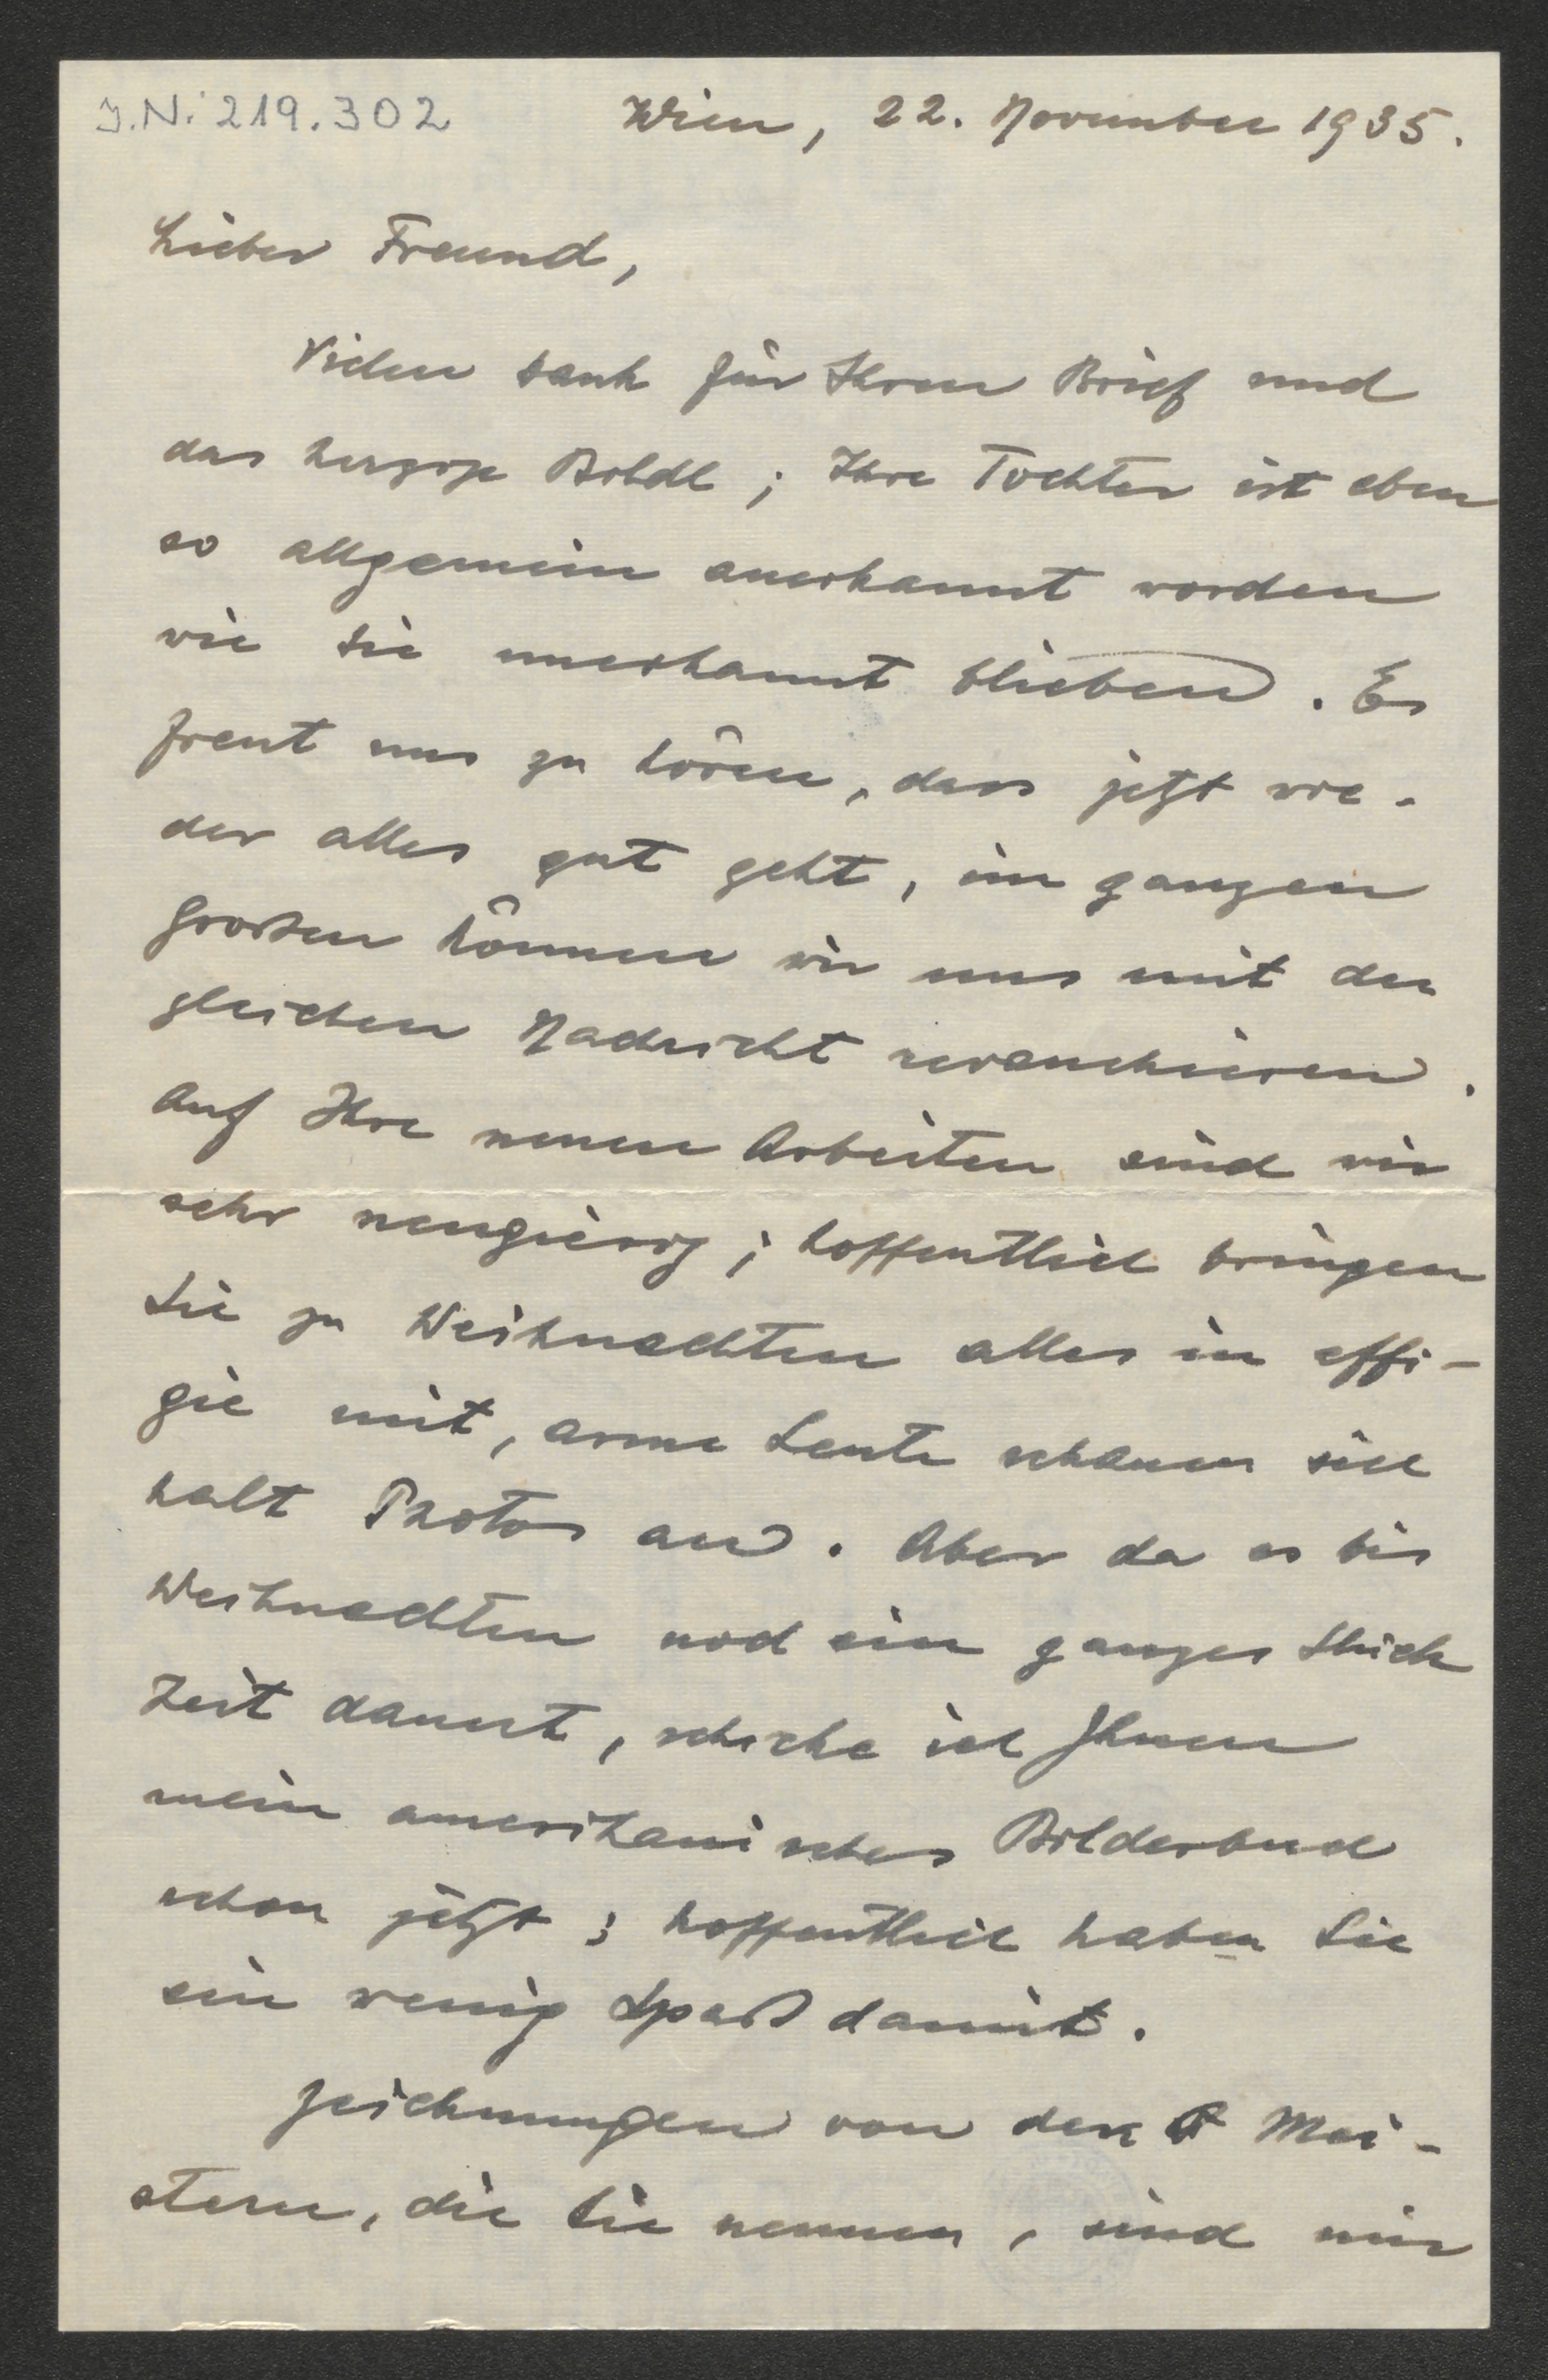 J.N. 219.302
Wien, 22. November 1935.
Lieber Freund,
Vielen Dank für Ihren Brief und
das herzige Bildl; Ihre Tochter ist eben
so allgemein anerkannt worden
wie Sie unerkannt blieben. Es
freut uns zu hören, dass jetzt wie-
der alles gut geht, im ganzen
Großen können wir uns mit der
gleichen Nachricht revanchieren.
Auf Ihre neuen Arbeiten sind wir
sehr neugierig; hoffentlich bringen
Sie zu Weihnachten alles in effi-
gie mit, arme Leute schauen sich
halt Photos an. Aber da es bis
Weihnachten noch ein ganzes Stück
Zeit dauert, schicke ich Ihnen
mein amerikanisches Bilderbuch
schon jetzt; hoffentlich haben Sie
ein wenig Spaß damit.
Zeichnungen von den Mei-
stern, die Sie nennen, sind mir